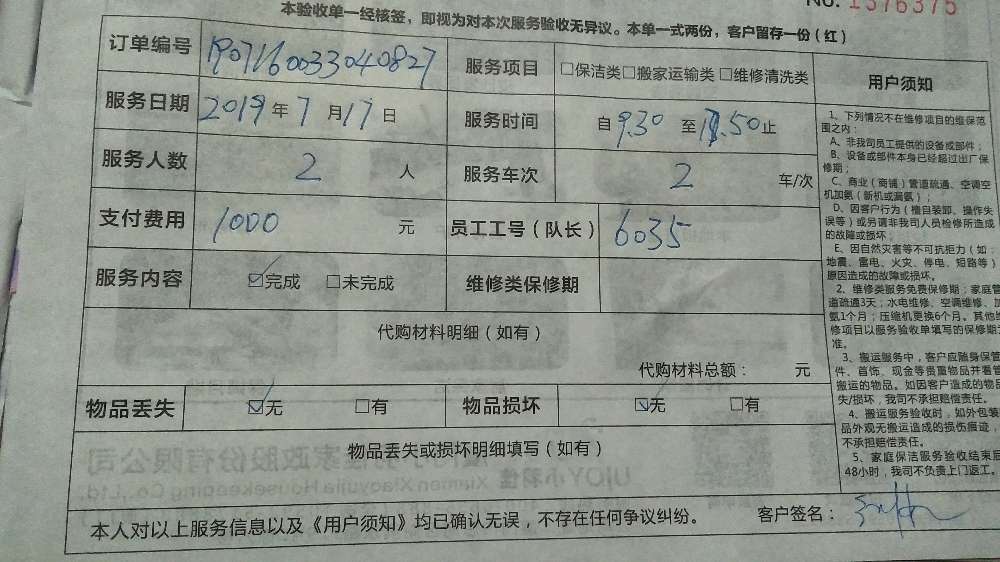 No. 1376375
本验收单一经核签，即视为对本次服务验收无异议。本单一式两份，客户留存一份（红）
订单编号 190716003304082​7 服务项目 □保洁类□搬家运输类□维修清洗类
服务日期 2019年7月17日 服务时间 自9.30至11.50止
服务人数 2 人 服务车次 2 车/次
支付费用 1000 元 员工工号（队长） 6035
服务内容 ☑完成 □未完成 维修类保修期
代购材料明细（如有）
代购材料总额： 元
物品丢失 ☑无 □有 物品损坏 ☑无 □有
物品丢失或损坏明细填写（如有）
本人对以上服务信息以及《用户须知》均已确认无误，不存在任何争议纠纷。 客户签名：
用户须知
1、下列情况不在维修项目的维保范
围之内：
A、非我司员工提供的设备或部件；
B、设备或部件本身已经超过出厂保
修期；
C、商业（商铺）管道疏通、空调空
机加氨（新机或漏氨）；
D、因客户行为（擅自装卸、操作失
误等）或另请非我司人员检修所造成
的故障或损坏；
E、因自然灾害等不可抗拒力（如：
地震、雷电、火灾、停电、短路等）
原因造成的故障或损坏。
2、维修类服务免费保修期：家庭管
道疏通3天；水电维修、空调维修、加
氨1个月；压缩机更换6个月。其他维
修项目以服务验收单填写的保修期为
准。
3、搬运服务中，客户应随身保管
件、首饰、现金等贵重物品并看管
搬运的物品。如因客户造成的物品
失/损坏，我司不承担赔偿责任。
4、搬运服务验收时，如外包装
品外观无搬运造成的损伤痕迹，
不承担赔偿责任。
5、家庭保洁服务验收结束后
48小时，我司不负责上门返工。